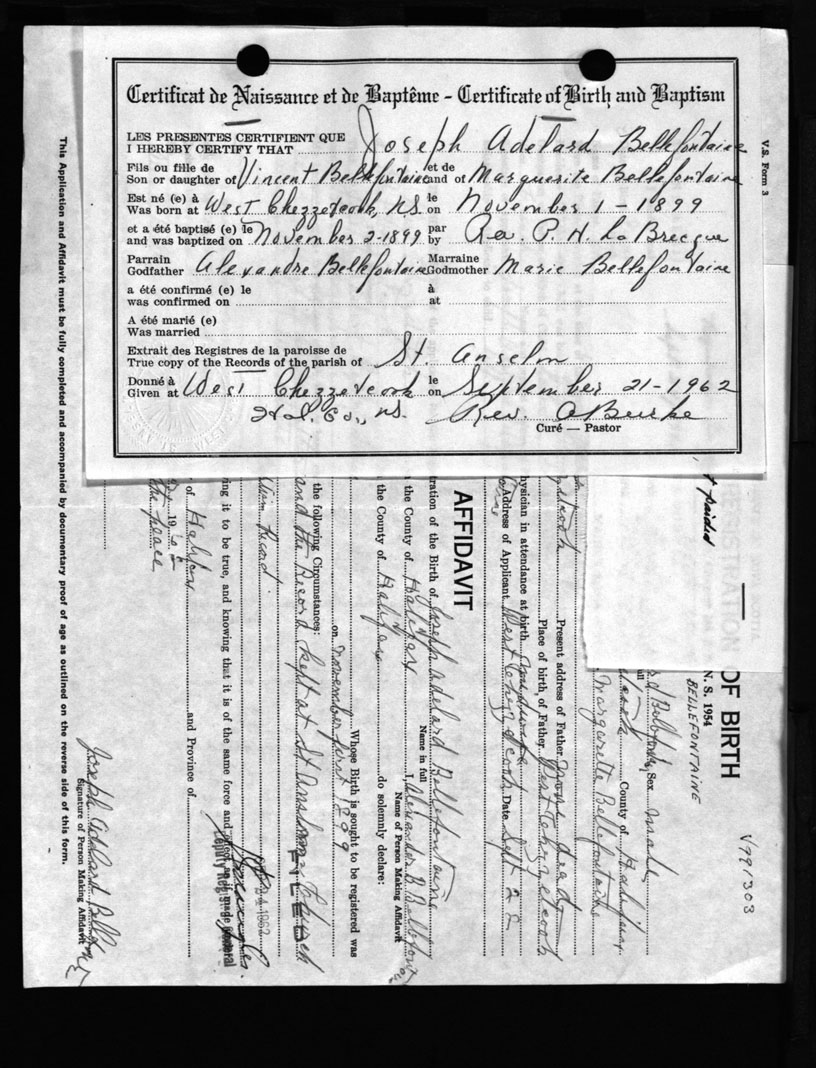 Certificat de Naissance et de Baptême - Certificate of Birth and Baptism
LES PRESENTES CERTIFIENT QUE
I HEREBY CERTIFY THAT Joseph Adelard Bellefontaine
Fils ou fille de et de
Son or daughter of Vincent Bellefontaine and of Marguerite Bellefontaine
Est né (e) à le
Was born at West Chezzetcook, N.S. on November 1-1899
et a été baptisé (e) le par
and was baptized on November 2-1899 by Rev. P. H. La Brecque
Parrain Marraine
Godfather Alexandre Bellefontaine Godmother Marie Bellefontaine
a été confirmé (e) le à
was confirmed on at
A été marié (e)
Was married
Extrait des Registres de la paroisse de
True copy of the Records of the parish of St. Anselm
Donné à le
Given at West Chezzetcook on September 21-1962
Hal. Co., N.S. Rev. A Burke
Curé — Pastor
V.S. Form 3
t paid
OF BIRTH
N. S. 1954
BELLEFONTAINE
V791303
Sex Male
County of Halifax
Margarette Bellefontaine
Present address of Father None dead
Place of birth of Father West Chezzetcook
hysician in attendance at birth
Address of Applicant West Chezzetcook Date Sept 22
AFFIDAVIT
tration of the Birth of Joseph Adelard Bellefontaine
Name in full
the County of Halifax I, Alexander B. Bellefontaine
Name of Person Making Affidavit
the County of Halifax do solemnly declare:
Whose Birth is sought to be registered was
on November first 1899
the following Circumstances:
and the Record kept at St Anselm
FILED
Record
1962
ing it to be true, and knowing that it is of the same force and effect as if made
Deputy Registrar General
of Halifax and Province of
19
the peace
Joseph Adelard
Signature of Person Making Affidavit
This Application and Affidavit must be fully completed and accompanied by documentary proof of age as outlined on the reverse side of this form.